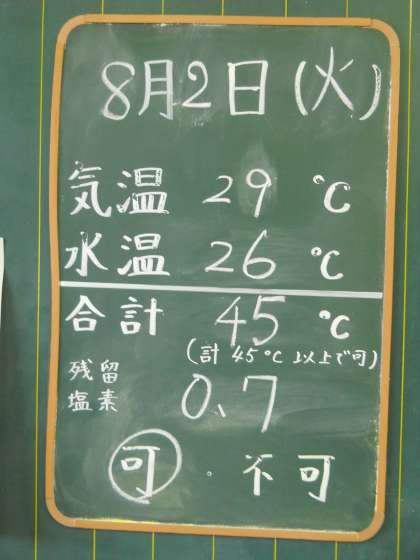 8月2日(火)
気温 29 ℃
水温 26 ℃
合計 45 ℃
(計 45℃ 以上で可)
残留
塩素 0.7
可・不可